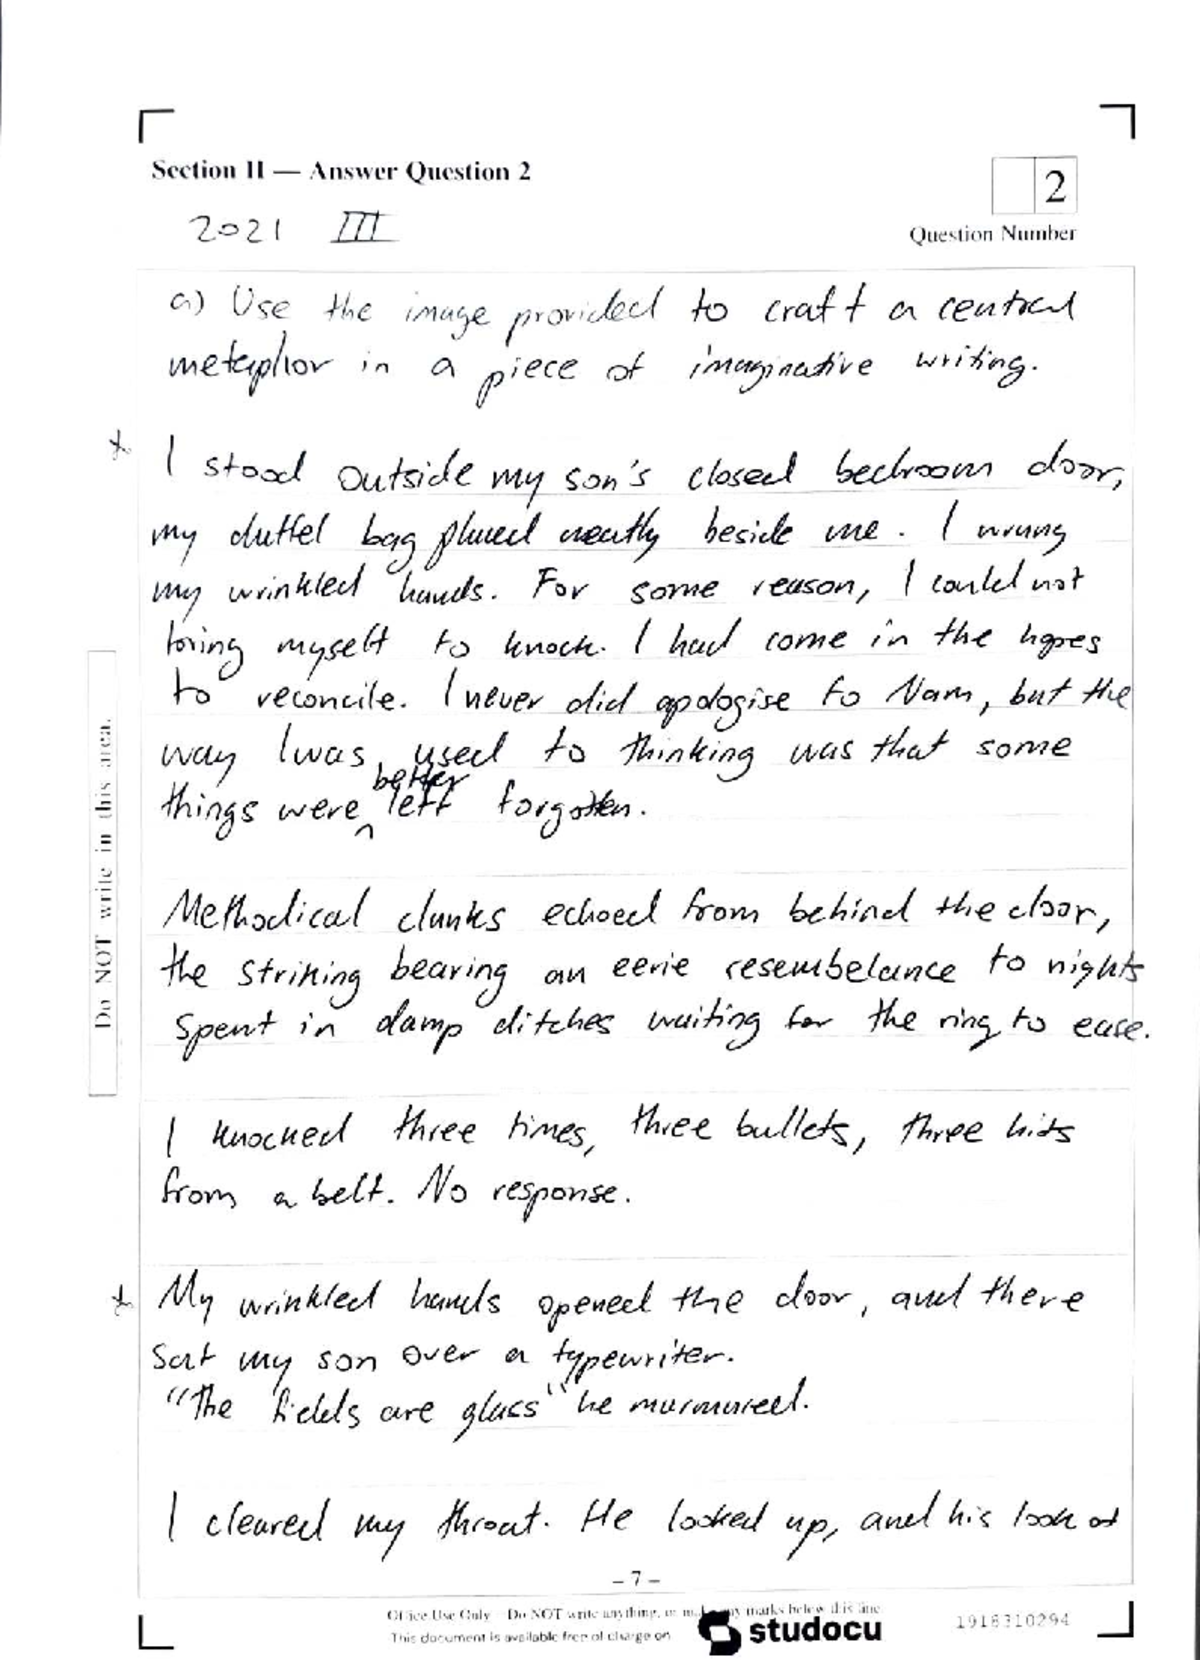 Section II — Answer Question 2
2
2021 III
Question Number
a) Use the image provided to craft a central
metaphor in a piece of imaginative writing.
I stood outside my son's closed bedroom door,
my duffel bag placed neatly beside me. I wrung
my wrinkled hands. For some reason, I could not
bring myself to knock. I had come in the hopes
to reconcile. I never did apologise to Nam, but the
way I was used to thinking was that some
better
things were ^ left forgotten.
Methodical clunks echoed from behind the door,
the striking bearing an eerie resembelance to nights
spent in damp ditches waiting for the ring to ease.
I knocked three times, three bullets, three hits
from a belt. No response.
My wrinkled hands opened the door, and there
sat my son over a typewriter.
"The fields are glass" he murmured.
I cleared my throat. He looked up, and his look of
Do NOT write in this area.
– 7 –
Office Use Only – Do NOT write anything, or make any marks below this line.
This document is available free of charge on
studocu
1918310294